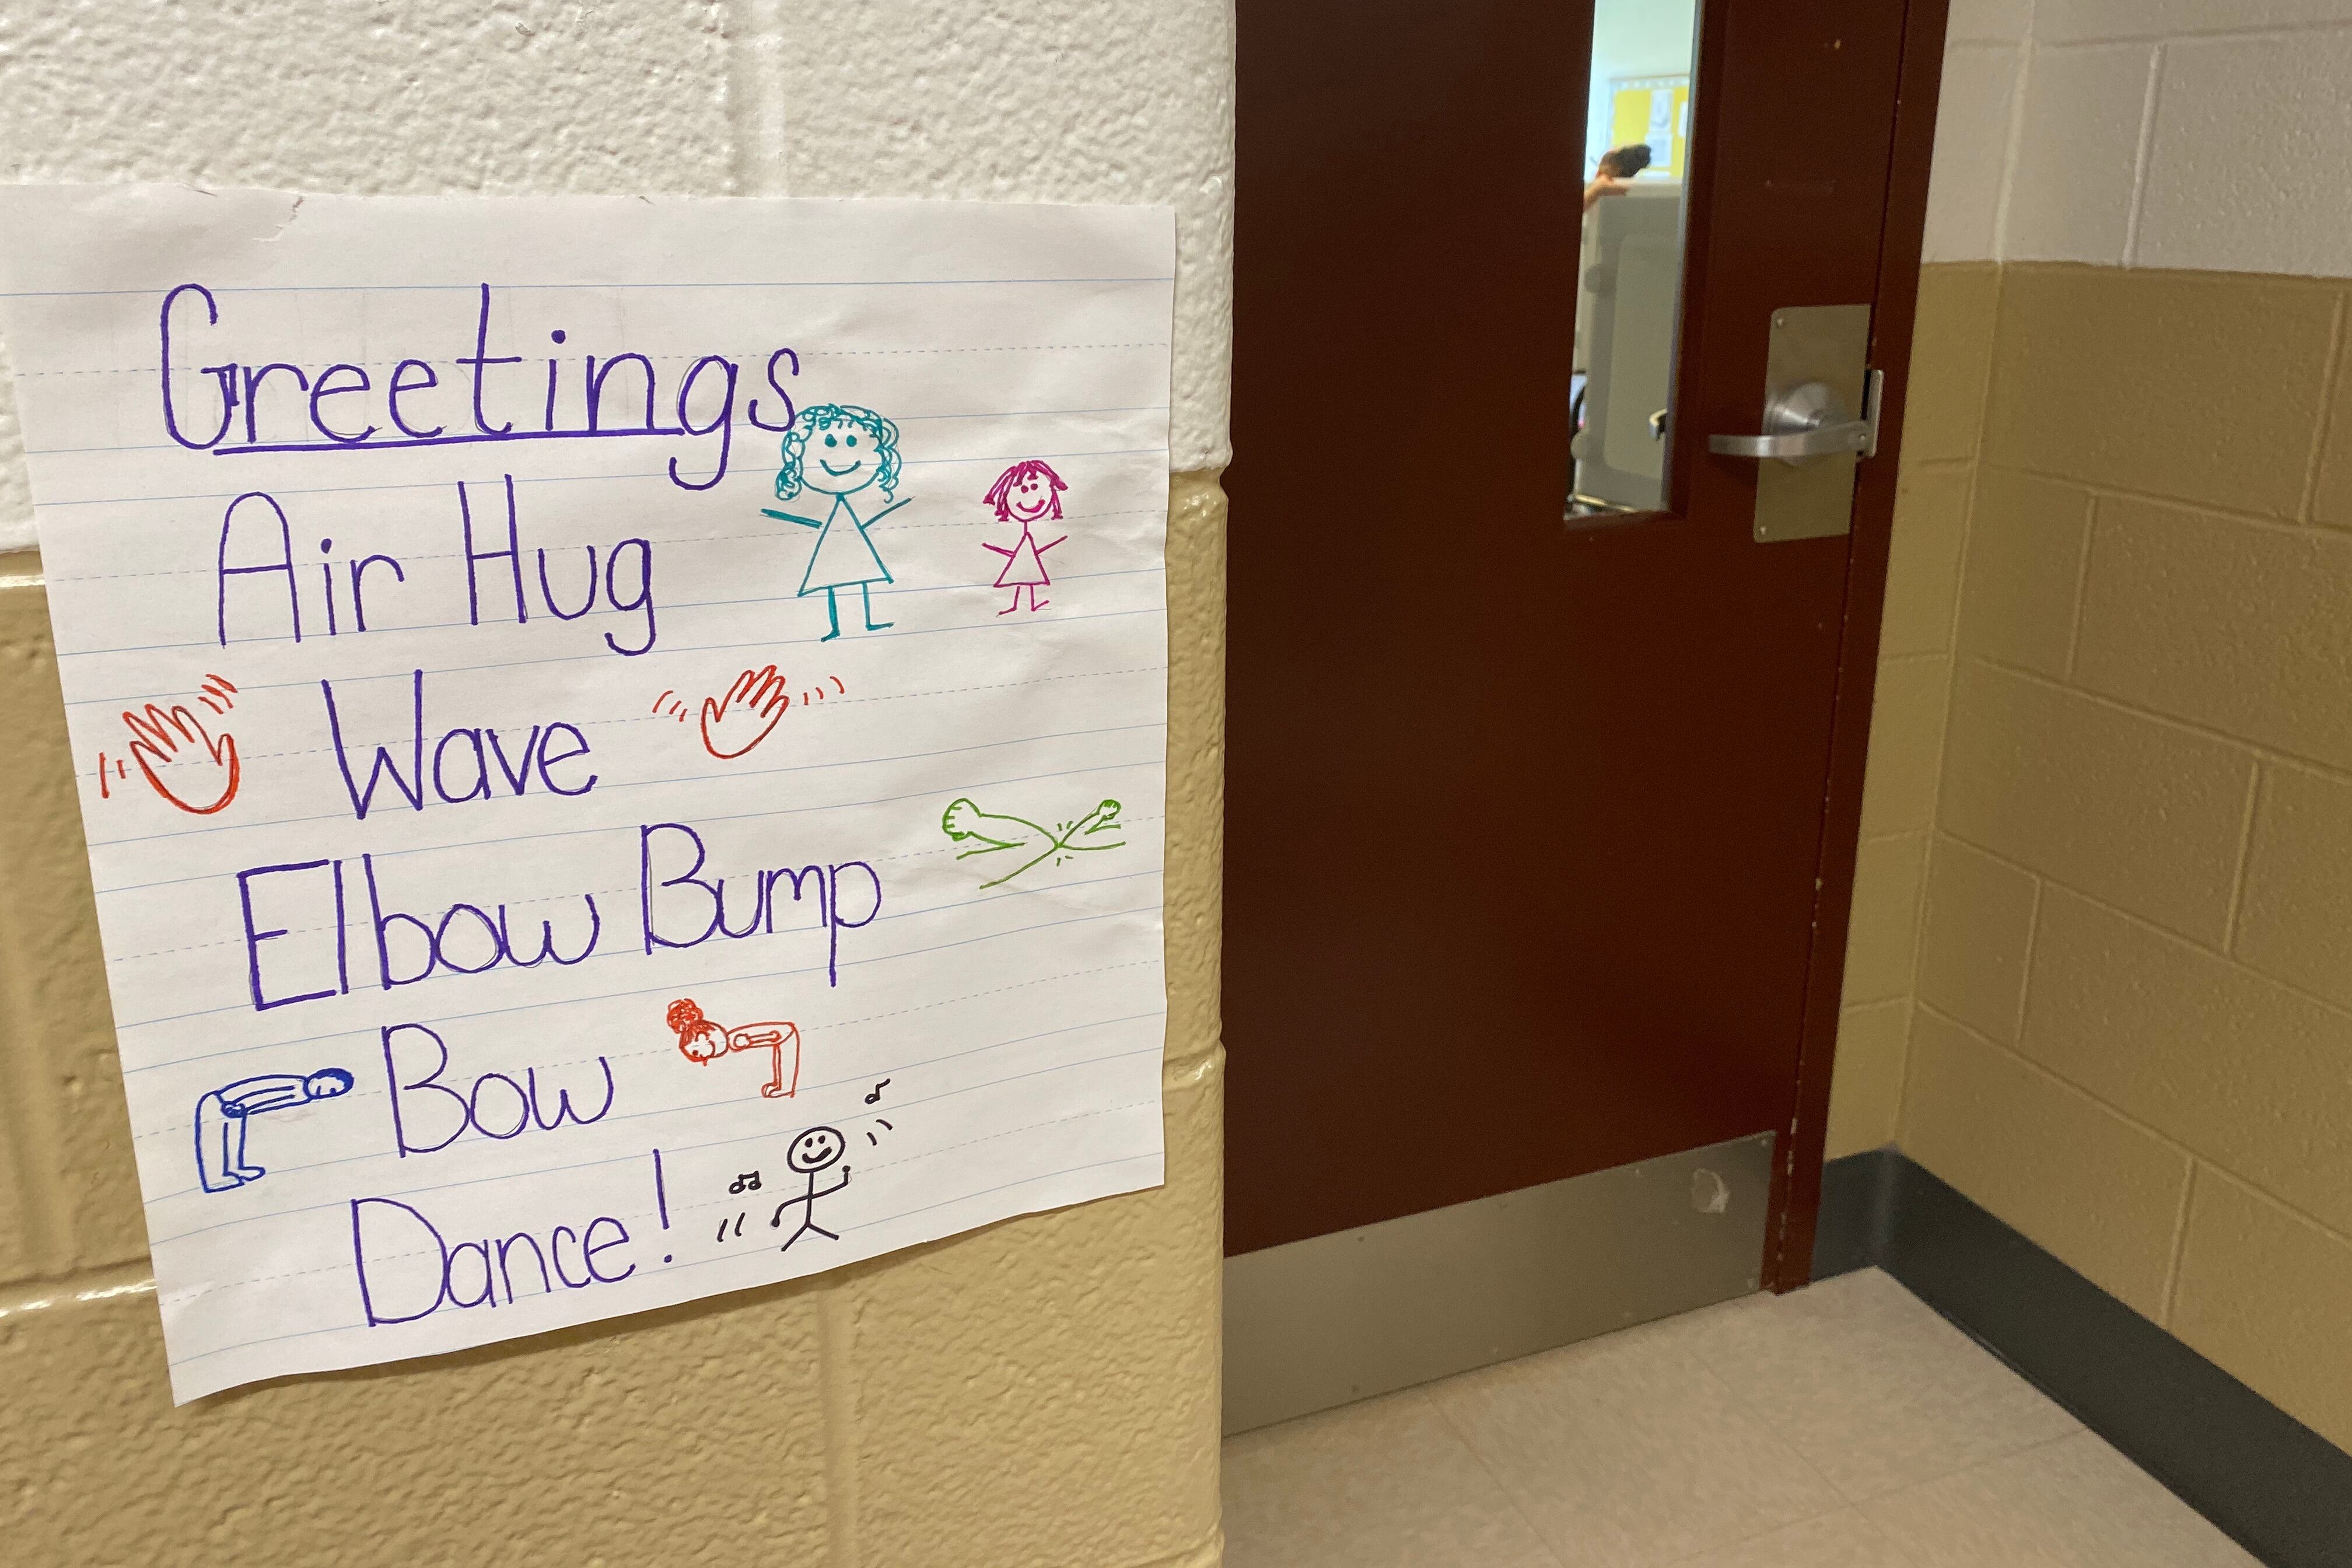 Greetings
Air Hug
Wave
Elbow Bump
Bow
Dance!